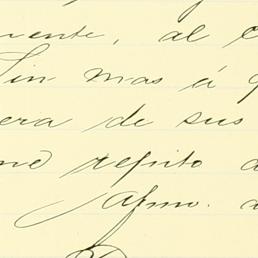 mente, al c
Sin mas á q
era de sus
me repito d
Afmo. d